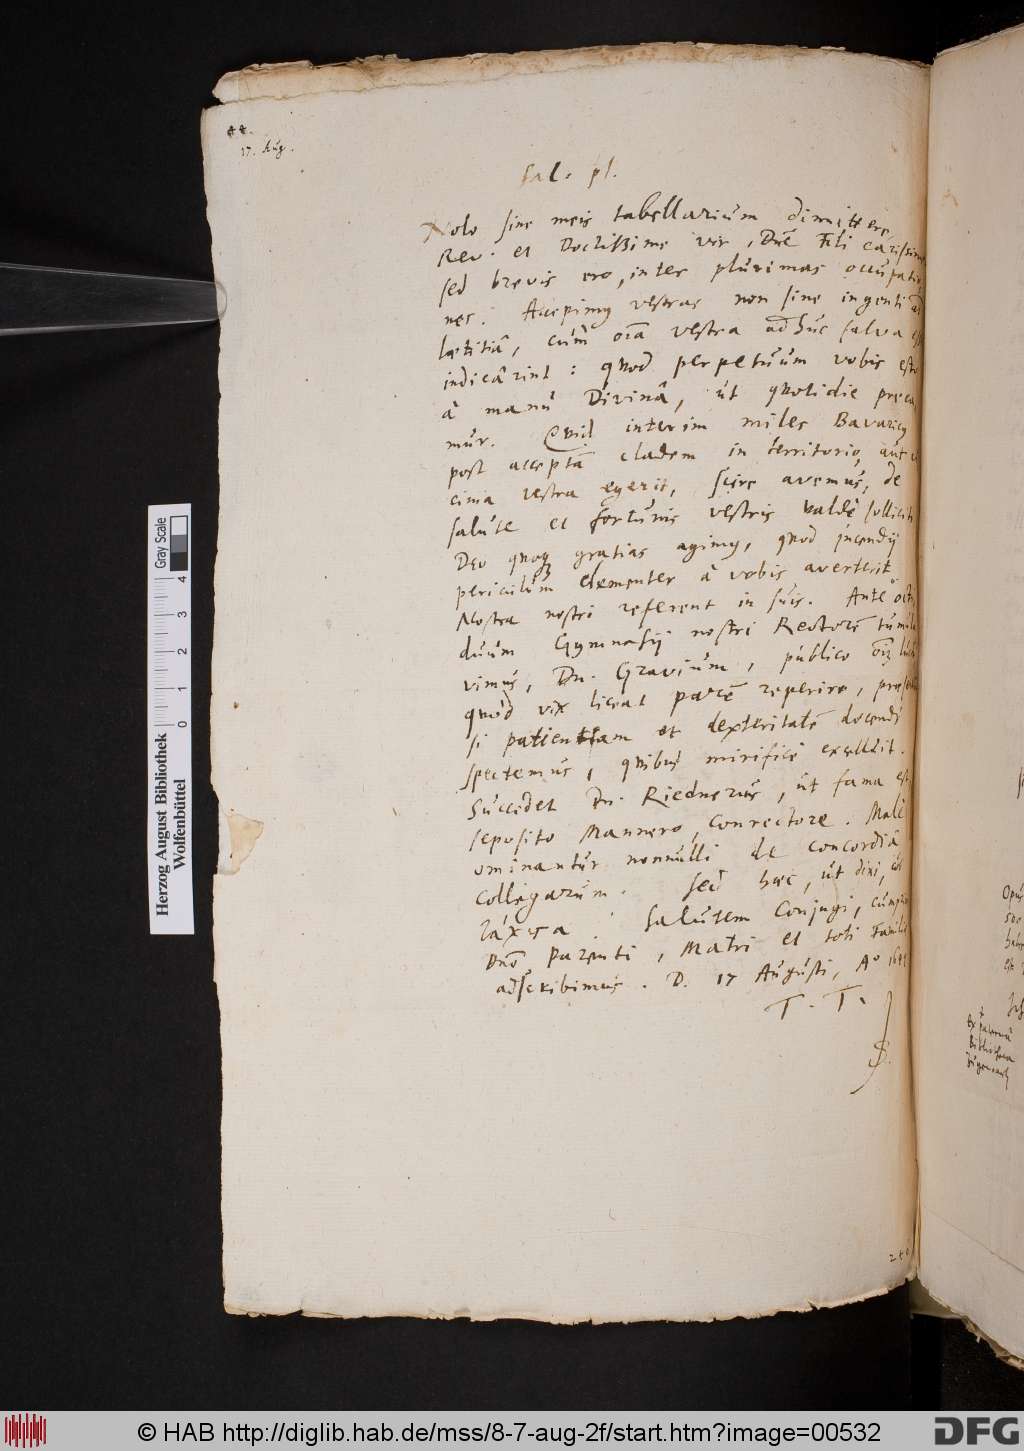 44.
17. Aug.
Sal. pl.
Nolo sine meis tabellarium dimittere,
Rev. et Doctissime vir, Dne Fili carissime
sed brevis ero, inter plurimas occupatio
nes. Accepimus vestras non sine ingenti
lætitiâ, cùm oĩa vestra adhuc salva
indicârint: quod perpetuum vobis esto
â manu Divinâ, ut quotidie preca
mur. Quid interim miles Bavaricus
post acceptã cladem in territorio, aut vi
cinia vestra egerit, scire avemus, de
salute et fortunis vestris valdè solliciti
Deo quoque gratias agimus, quod incendij
periculum clementer â vobis averterit
Nostra nostri referent in suis. Ante octi
duum Gymnasij nostri Rectorẽ tumula
vimus, Dn. Gravium, publico
quod vix liceat parẽ reperire, præser
si patientiam et dexteritatẽ docendi
spectemus, quibus mirificè excelluit.
Succedet Dn. Riednerus, ut fama est
seposito Mannero, Conrectore. Malè
ominantur nonnulli de concordiâ
Collegarum. Sed hæc, ut dixi,
Salutem Conjugi, cumprimis
Dno Parenti, Matri et toti Familiæ
adscribimus. D. 17 Augusti, Aº
T. T.
S.
Ex paterna
Bibliotheca
Herzog August Bibliothek
Wolfenbüttel
0 1 2 3 4
Gray Scale
© HAB http://diglib.hab.de/mss/8-7-aug-2f/start.htm?image=00532
DFG